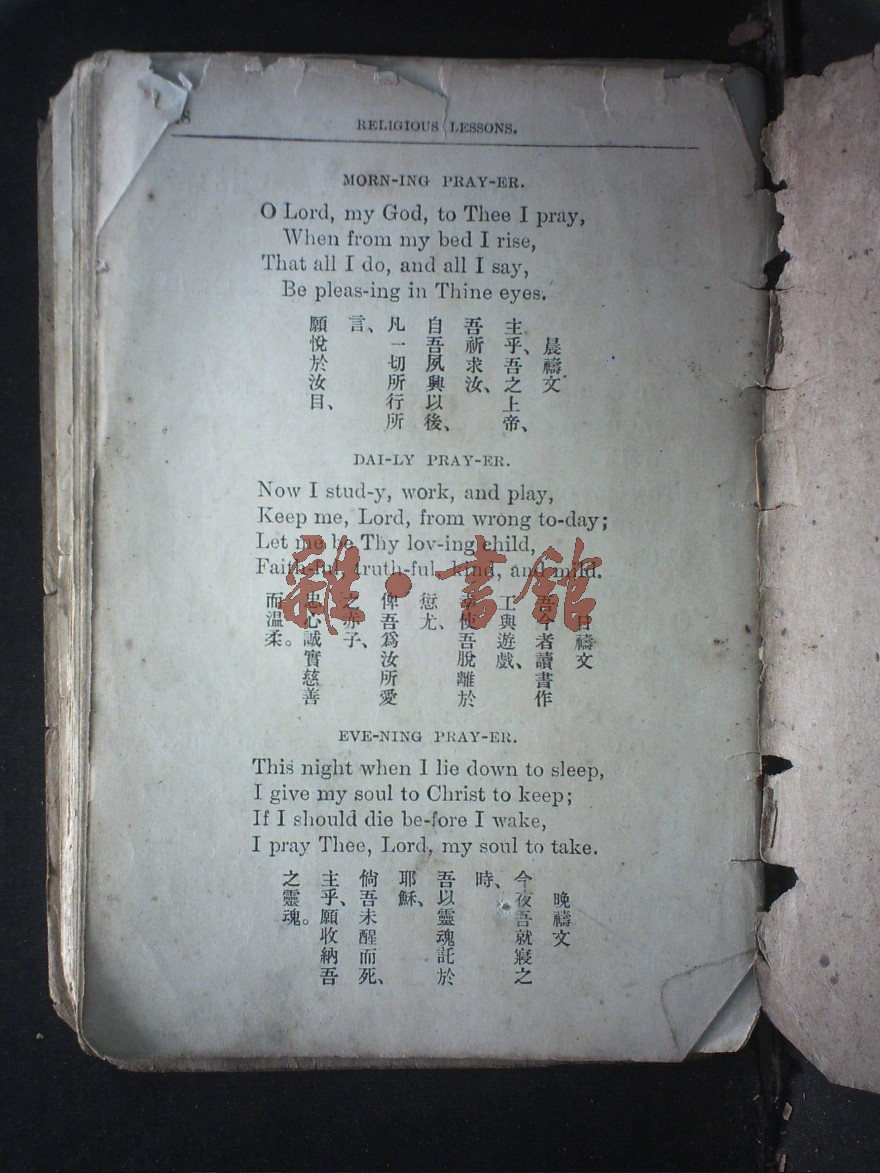 8
RELIGIOUS LESSONS.
MORN-ING PRAY-ER.
O Lord, my God, to Thee I pray,
When from my bed I rise,
That all I do, and all I say,
Be pleas-ing in Thine eyes.
晨禱文
主乎、吾之上帝、
吾祈求汝、
自吾夙興以後、
凡一切所行所
言、
願悅於汝目、
DAI-LY PRAY-ER.
Now I stud-y, work, and play,
Keep me, Lord, from wrong to-day;
Let me be Thy lov-ing child,
Faith-ful, truth-ful, kind, and mild.
日禱文
吾今者讀書作
工與遊戲、
使吾脫離於
愆尤、
俾吾爲汝所愛
之赤子、
忠心誠實慈善
而溫柔。
EVE-NING PRAY-ER.
This night when I lie down to sleep,
I give my soul to Christ to keep;
If I should die be-fore I wake,
I pray Thee, Lord, my soul to take.
晚禱文
今夜吾就寢之
時、
吾以靈魂託於
耶穌、
倘吾未醒而死、
主乎、願收納吾
之靈魂。
雜·書館